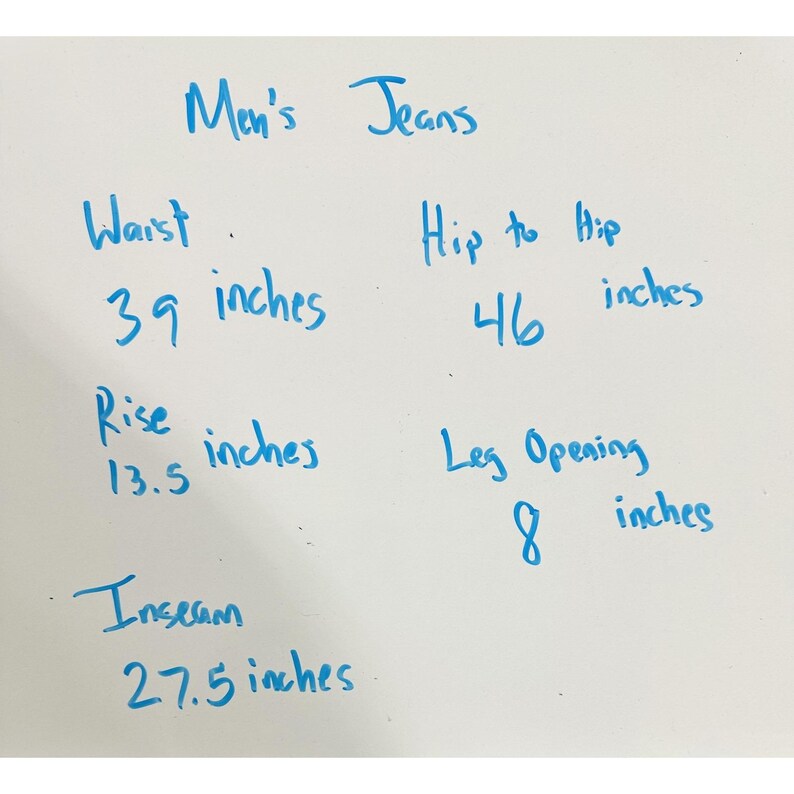 Men's Jeans
Waist
39 inches
Hip to Hip
46 inches
Rise
13.5 inches
Leg Opening
8 inches
Inseam
27.5 inches